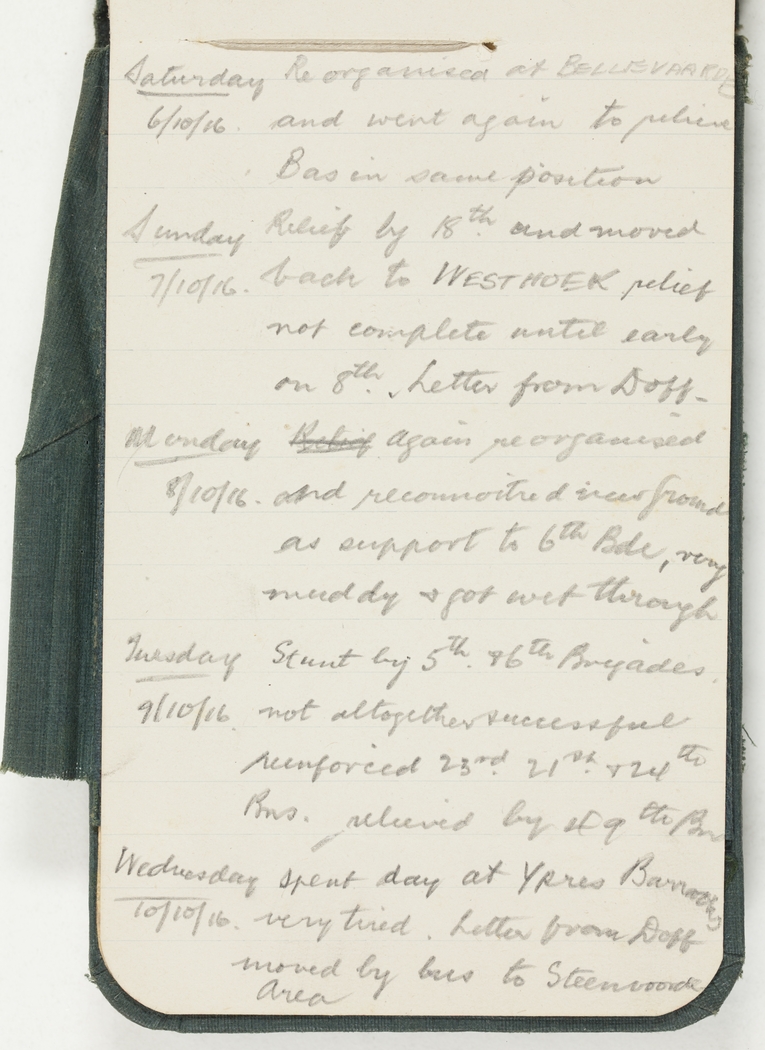 Saturday Reorganised at BELLEVAARDE
6/10/16. and went again to relieve
Bas in same position
Sunday Relief by 18th. and moved
7/10/16. back to WESTHOEK relief
not complete until early
on 8th. Letter from Doff-
Monday Relief Again reorganised
8/10/16. and reconnoitred new ground
as support to 6th Bde, very
muddy & got wet through
Tuesday Stunt by 5th. & 6th Brigades.
9/10/16 not altogether successful
reinforced 23rd. 21st. & 24th
Bns. relieved by 49th Bn
Wednesday spent day at Ypres Barracks
10/10/16. very tired. Letter from Doff
moved by bus to Steenvoorde
Area